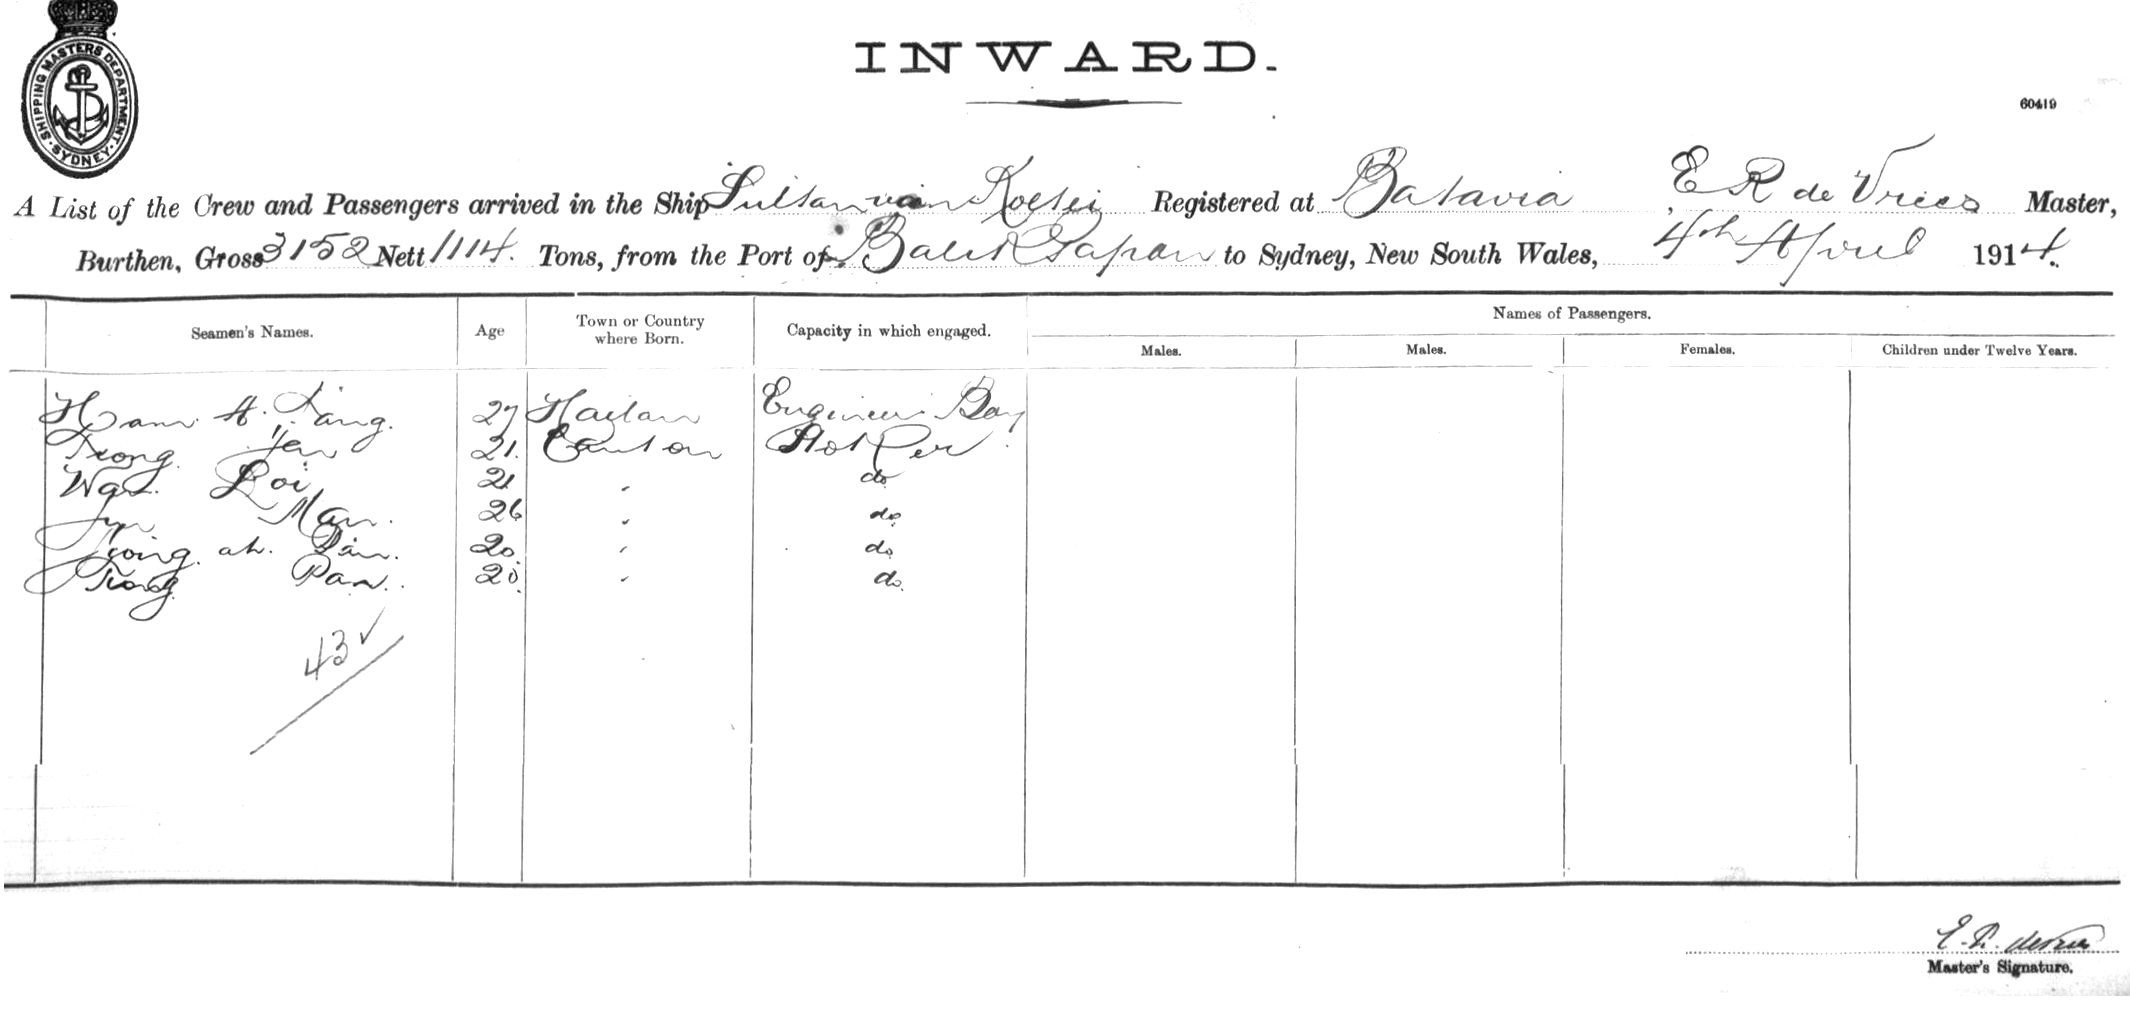 SHIPPING MASTERS DEPARTMENT SYDNEY
INWARD.
60419
A List of the Crew and Passengers arrived in the Ship Sultan van Koetei Registered at Batavia E R de Vries Master,
Burthen, Gross 3152 Nett 1114. Tons, from the Port of Balik Papan to Sydney, New South Wales, 4th April 1914.
Seamen's Names. Age Town or Country where Born. Capacity in which engaged. Names of Passengers.
Males. Males. Females. Children under Twelve Years.
Ham A. 27 Hailam Engineer Boy
21. Canton
Loi 21 do
Man. 26 do
ah. 20 do
Pan. 20 do
43 ✓
E. R. de Vries
Master's Signature.